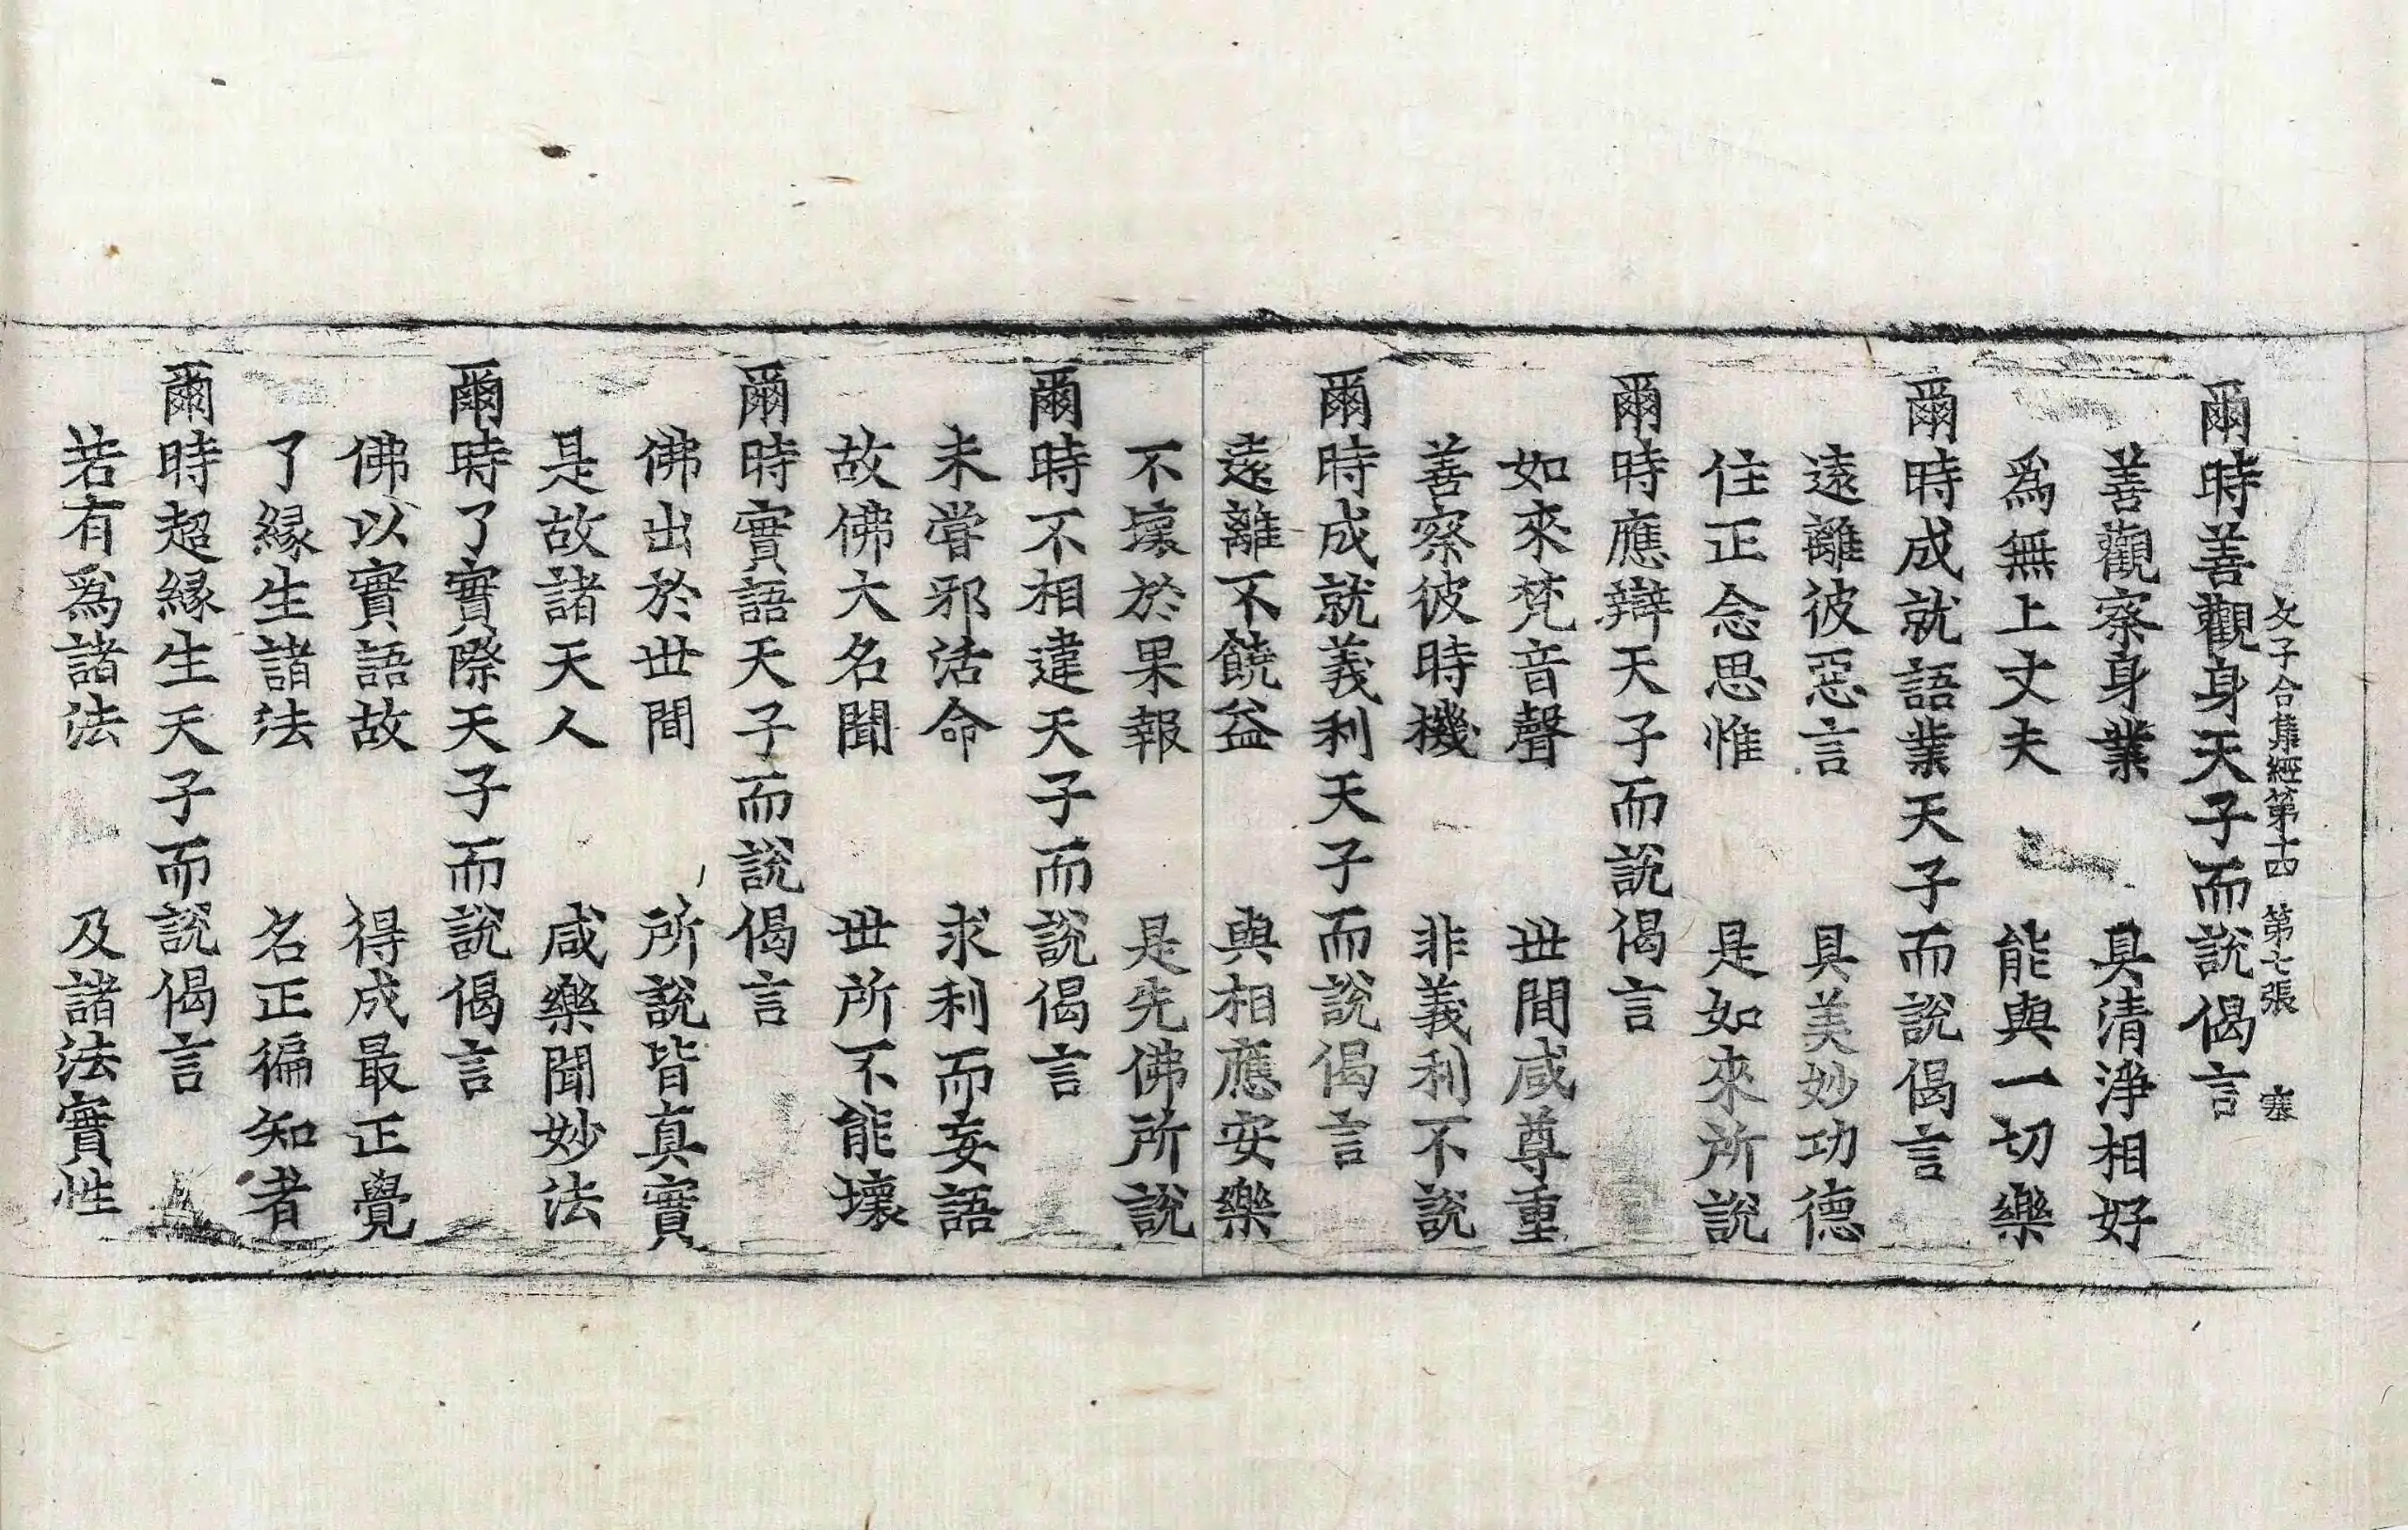 父子合集經第十四 第七張 塞
爾時善觀身天子而說偈言
善觀察身業 具清淨相好
爲無上丈夫 能與一切樂
爾時成就語業天子而說偈言
遠離彼惡言 具美妙功德
住正念思惟 是如來所說
爾時應辯天子而說偈言
如來梵音聲 世間咸尊重
善察彼時機 非義利不說
爾時成就義利天子而說偈言
遠離不饒益 與相應安樂
不壞於果報 是先佛所說
爾時不相違天子而說偈言
未甞邪活命 求利而妄語
故佛大名聞 世所不能壞
爾時實語天子而說偈言
佛出於世間 所說皆真實
是故諸天人 咸樂聞妙法
爾時了實際天子而說偈言
佛以實語故 得成最正覺
了緣生諸法 名正徧知者
爾時超緣生天子而說偈言
若有爲諸法 及諸法實性